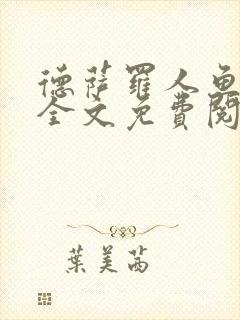 德薩羅人魚
全文免費閱
葉美茜